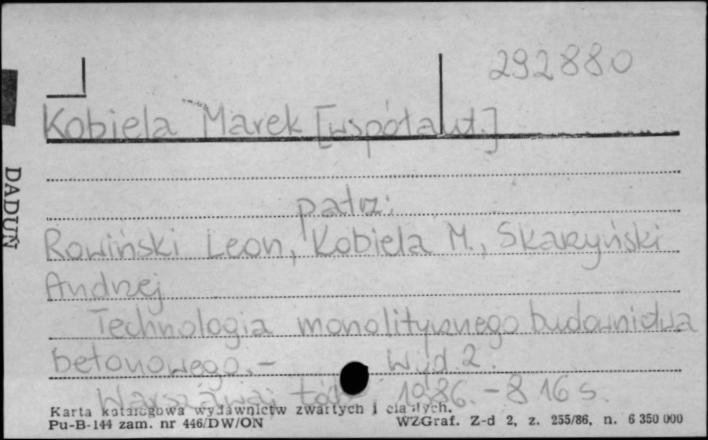 292880
Kobiela Marek [współaut.]
patrz:
Rowiński Leon, Kobiela M., Skarzyński
Andrzej
Technologia monolitycznego budownictwa
betonowego.- Wyd. 2.
Warszawa; Łódź, 1986.- 816 s.
Karta katalogowa wydawnictw zwartych i ciągłych.
Pu-B-144 zam. nr 446/DW/ON WZGraf. Z-d 2, z. 255/86, n. 6 350 000
DADUŃ